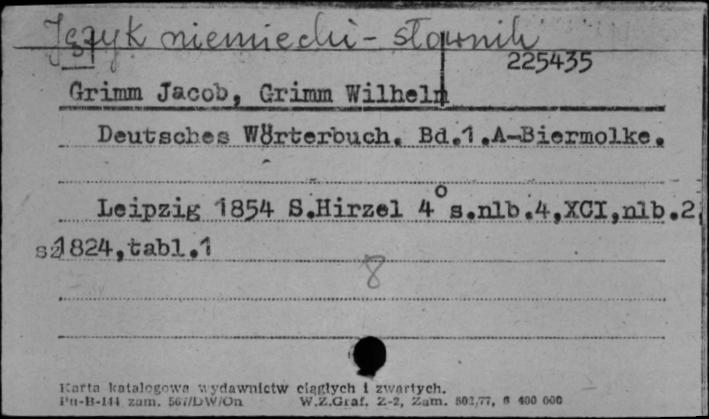 Język niemiecki - słownik
225435
Grimm Jacob, Grimm Wilhelm
Deutsches Wörterbuch. Bd.1.A-Biermolke.
Leipzig 1854 S.Hirzel 4° s.nlb.4,XCI,nlb.2,
sz1824,tabl.1
8
Karta katalogowa wydawnictw ciągłych i zwartych.
Pu-B-144 zam. 567/DW/On W.Z.Graf. Z-2, Zam. 502/77, 6 400 000